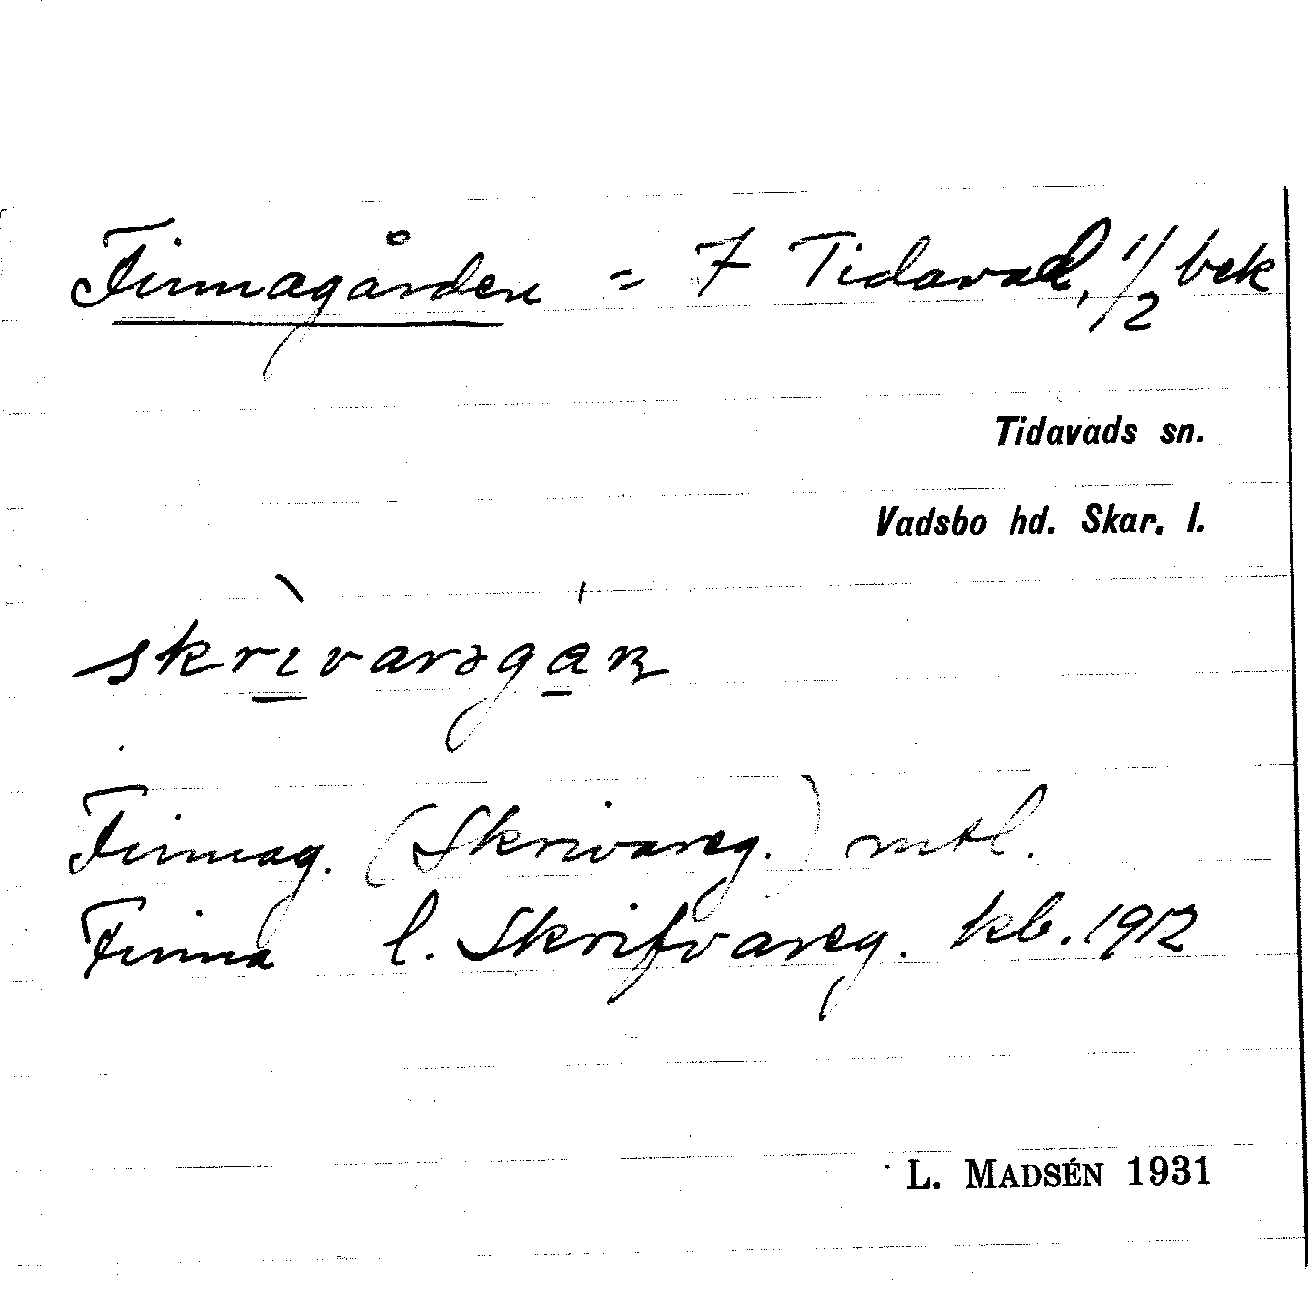 Finnagården = 7 Tidavad, 1/2 bek
Tidavads sn.
Vadsbo hd. Skar. l.
skrìvarəgáṉ
Finnag. (Skrivareg.) mtl.
Finna l. Skrifvareg. kb. 1912
L. MADSÉN 1931